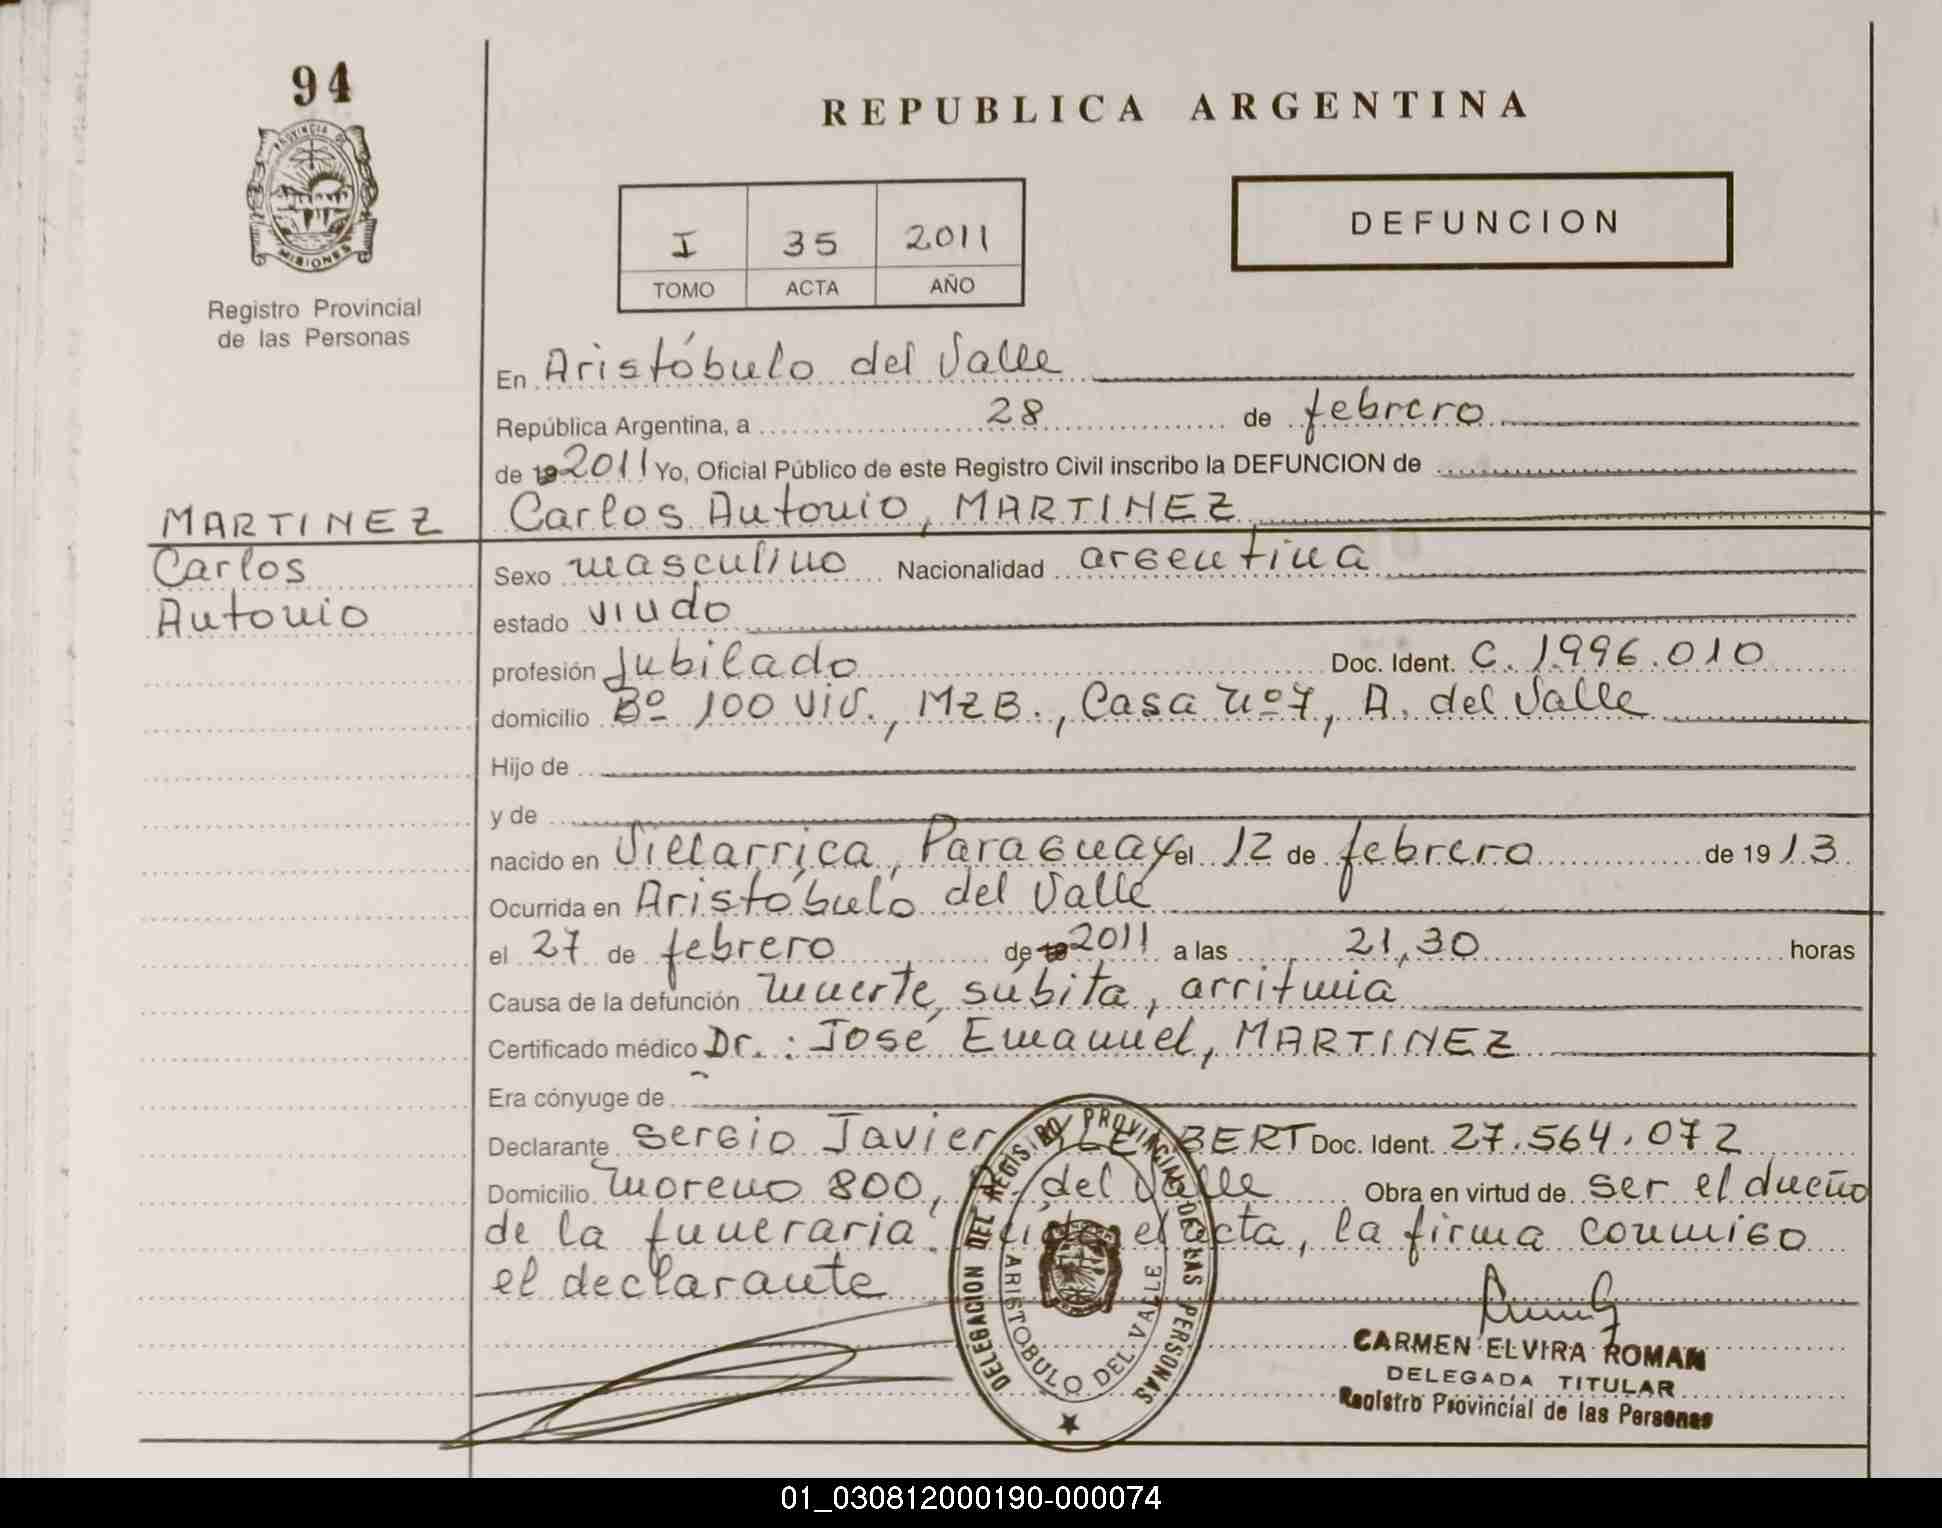 94
REPUBLICA ARGENTINA
PROVINCIA DE
MISIONES
Registro Provincial
de las Personas
I 35 2011
TOMO ACTA AÑO
DEFUNCION
En Aristóbulo del Valle
República Argentina, a 28 de febrero
de 19 2011 Yo, Oficial Público de este Registro Civil inscribo la DEFUNCION de
MARTINEZ
Carlos
Antonio
Carlos Antonio, MARTINEZ
Sexo masculino Nacionalidad argentina
estado viudo
profesión Jubilado Doc. Ident. C. 1996.010
domicilio Bº 100 Viv., MZB., Casa nº7, A. del Valle
Hijo de
y de
nacido en Villarrica, Paraguay el 12 de febrero de 1913
Ocurrida en Aristóbulo del Valle
el 27 de febrero de 19 2011 a las 21,30 horas
Causa de la defunción muerte súbita, arritmia
Certificado médico Dr.: José Emanuel, MARTINEZ
Era cónyuge de
Declarante Sergio Javier BERT Doc. Ident. 27.564.072
Domicilio Moreno 800, A. del Valle Obra en virtud de ser el dueño
de la funeraria. el acta, la firma conmigo
el declarante
DELEGACION DEL REGISTRO PROVINCIAL DE LAS PERSONAS
ARISTOBULO DEL VALLE
CARMEN ELVIRA ROMAN
DELEGADA TITULAR
Registro Provincial de las Personas
01_030812000190-000074